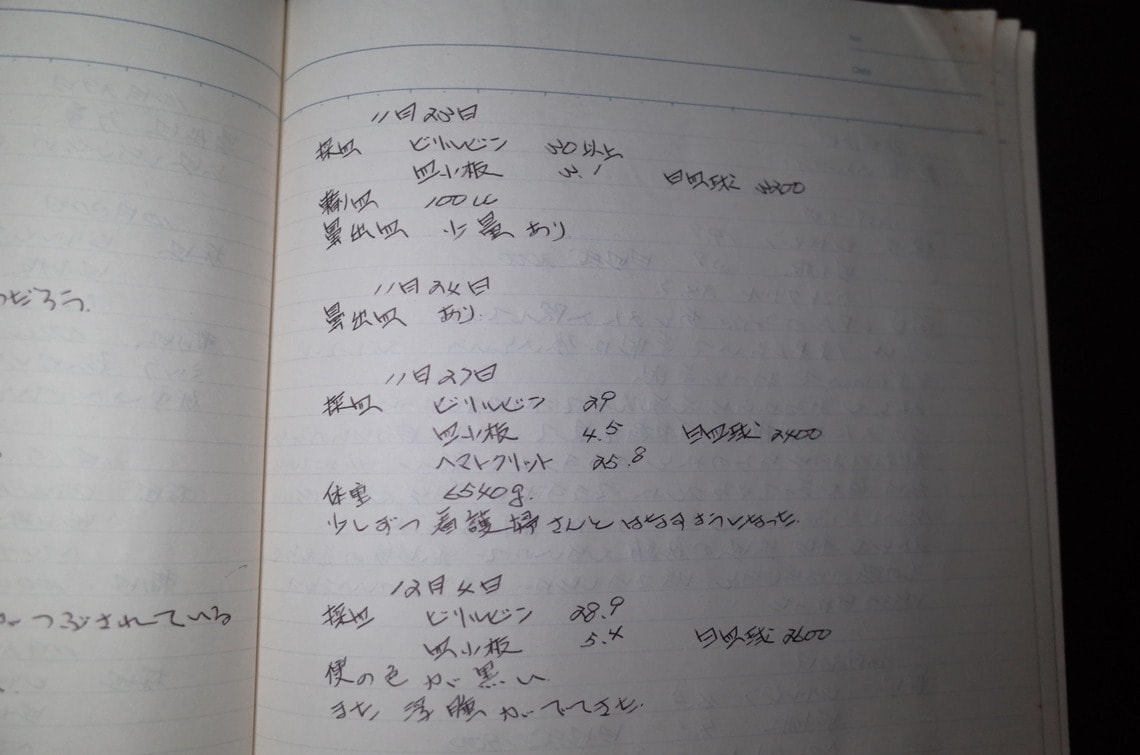 つだろう.
つぶされている
11月23日
採血 ビリルビン 30以上
血小板 3.1 白血球 3300
輸血 100cc
鼻出血 少量あり
11月24日
鼻出血 あり.
11月27日
採血 ビリルビン 29
血小板 4.5 白血球 2400
ヘマトクリット 25.8
体重 6540g.
少しずつ看護婦さんとはなすようになった.
12月4日
採血 ビリルビン 28.9
血小板 5.4 白血球 2600
便の色が黒い
また 浮腫がでてきた.